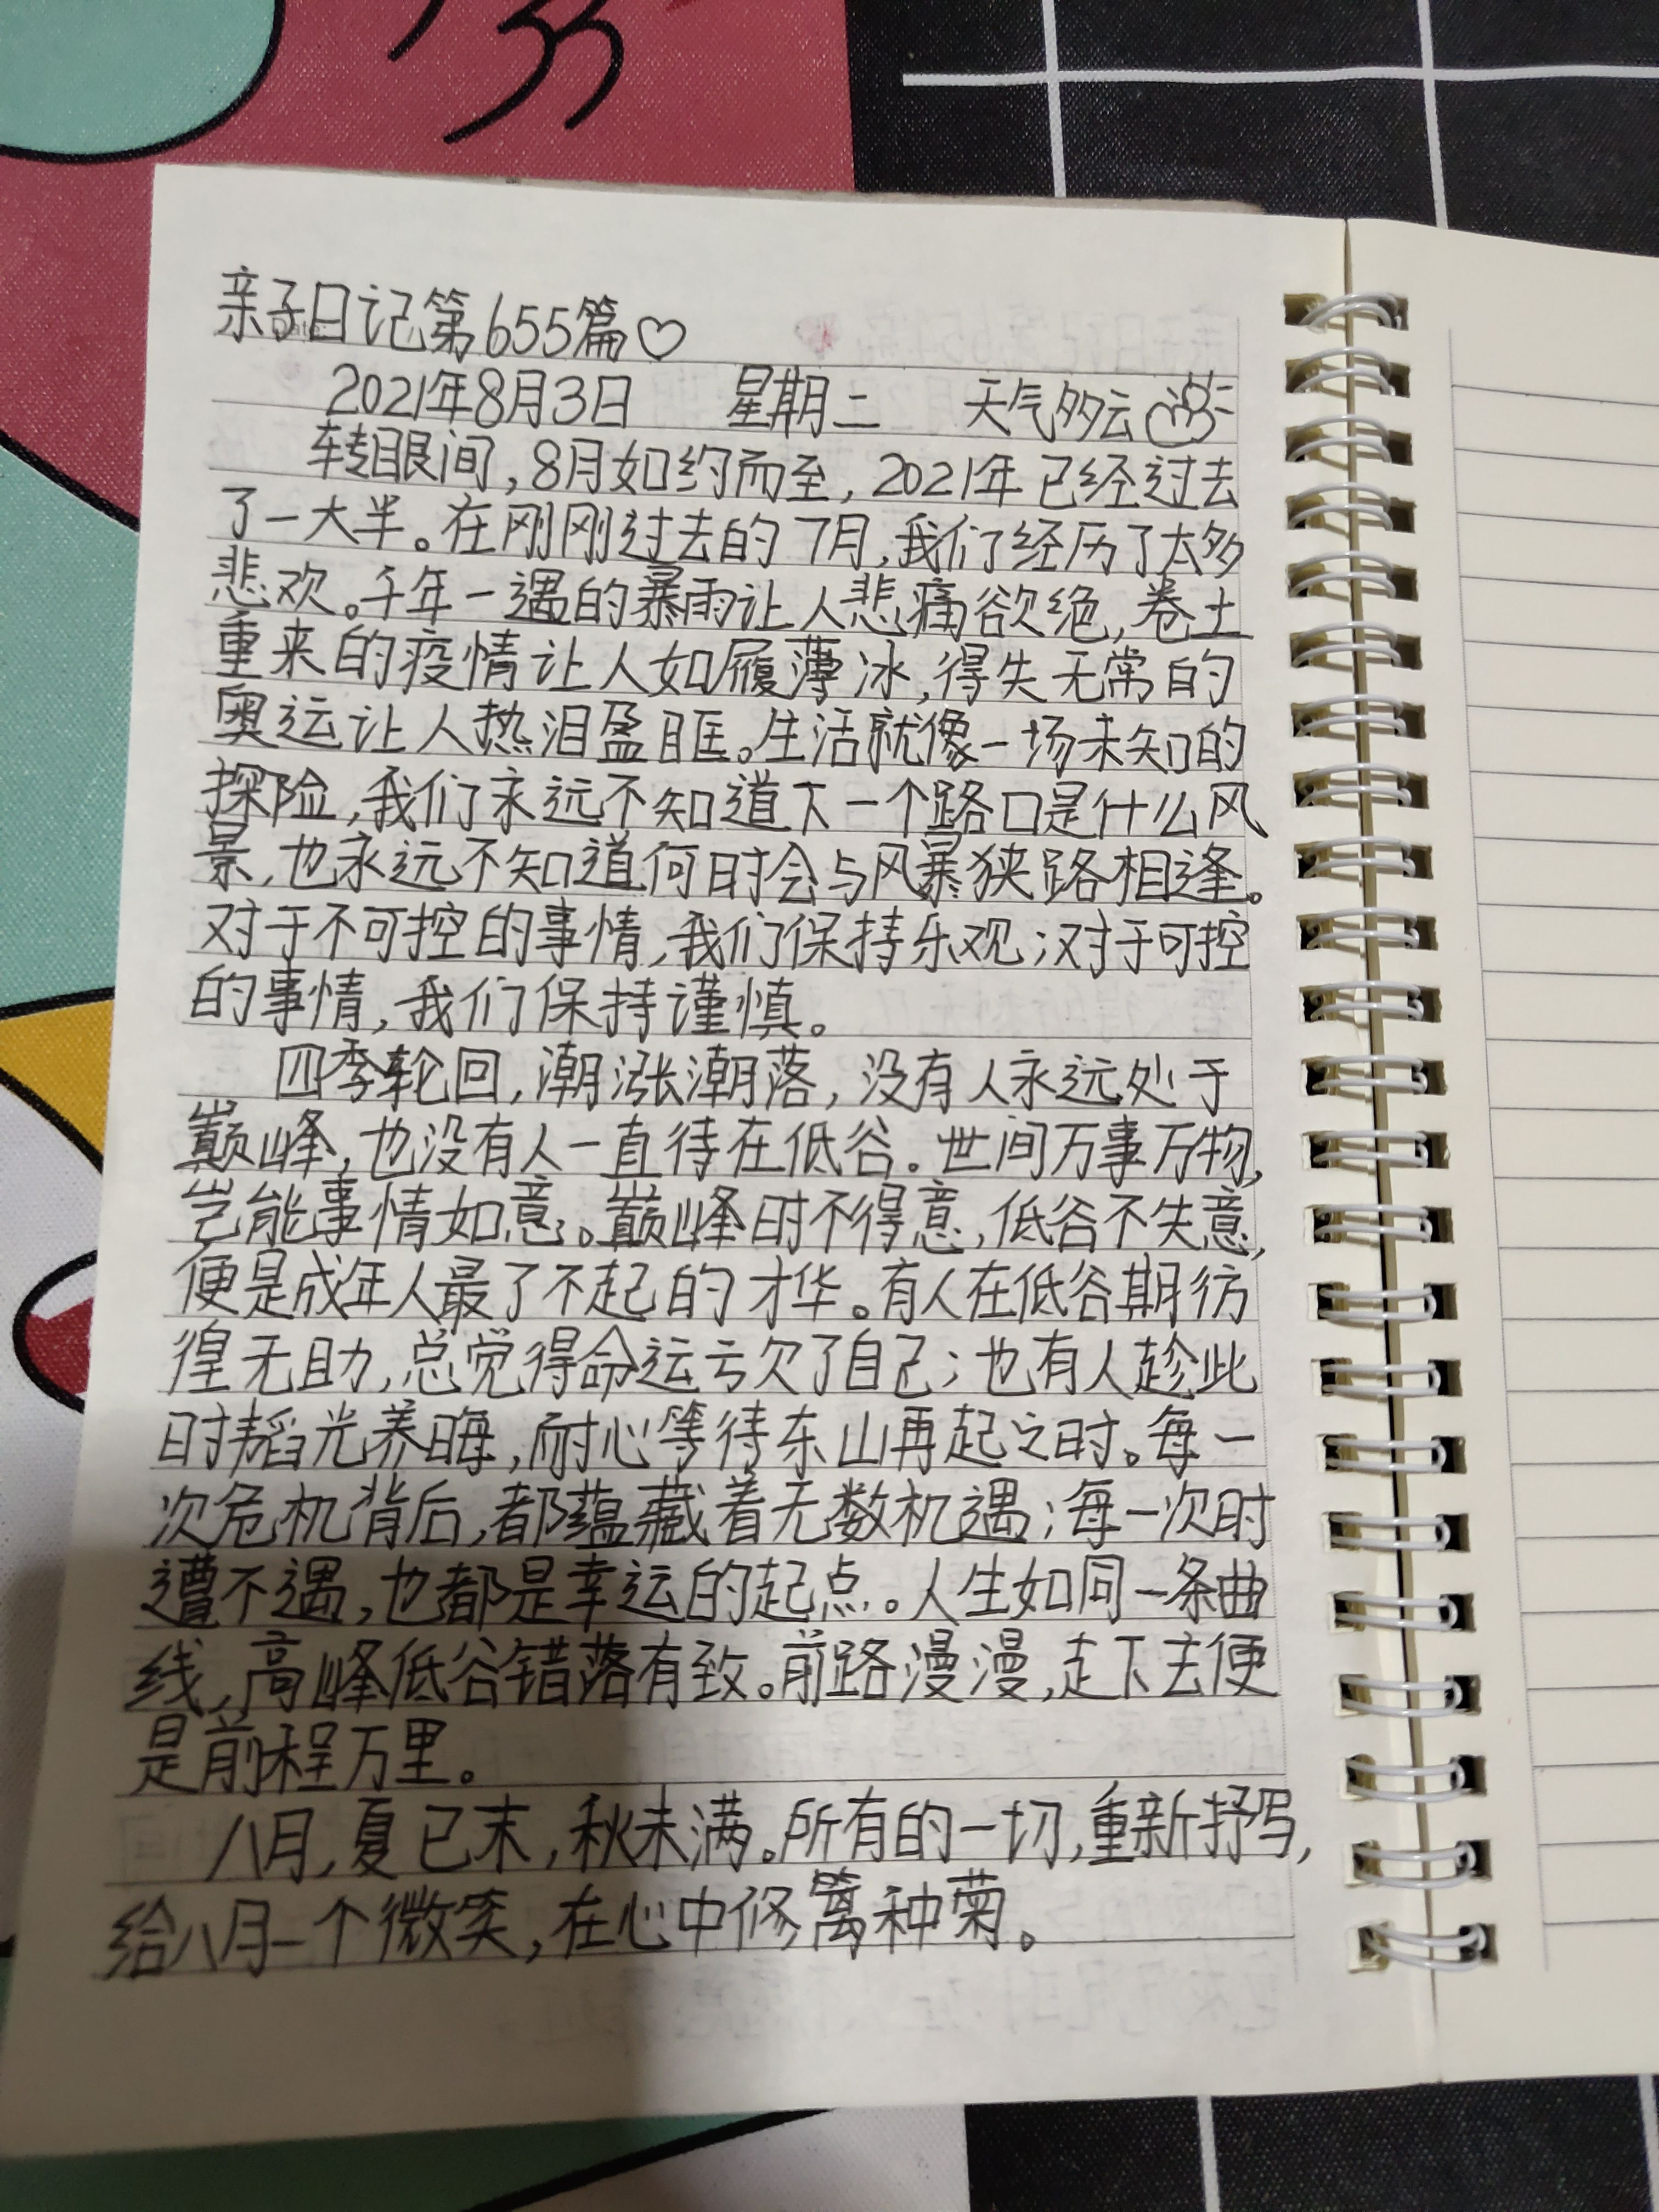 亲子日记第655篇♡
2021年8月3日 星期二 天气多云
转眼间,8月如约而至,2021年已经过去
了一大半。在刚刚过去的7月,我们经历了太多
悲欢。千年一遇的暴雨让人悲痛欲绝,卷土
重来的疫情让人如履薄冰,得失无常的
奥运让人热泪盈眶。生活就像一场未知的
探险,我们永远不知道下一个路口是什么风
景,也永远不知道何时会与风暴狭路相逢。
对于不可控的事情,我们保持乐观;对于可控
的事情,我们保持谨慎。
四季轮回,潮涨潮落,没有人永远处于
巅峰,也没有人一直待在低谷。世间万事万物,
岂能事情如意。巅峰时不得意,低谷不失意,
便是成年人最了不起的才华。有人在低谷期彷
徨无助,总觉得命运亏欠了自己;也有人趁此
时韬光养晦,耐心等待东山再起之时。每一
次危机背后,都蕴藏着无数机遇;每一次时
遭不遇,也都是幸运的起点。人生如同一条曲
线,高峰低谷错落有致。前路漫漫,走下去便
是前程万里。
八月,夏已末,秋未满。所有的一切,重新抒写,
给八月一个微笑,在心中修篱种菊。